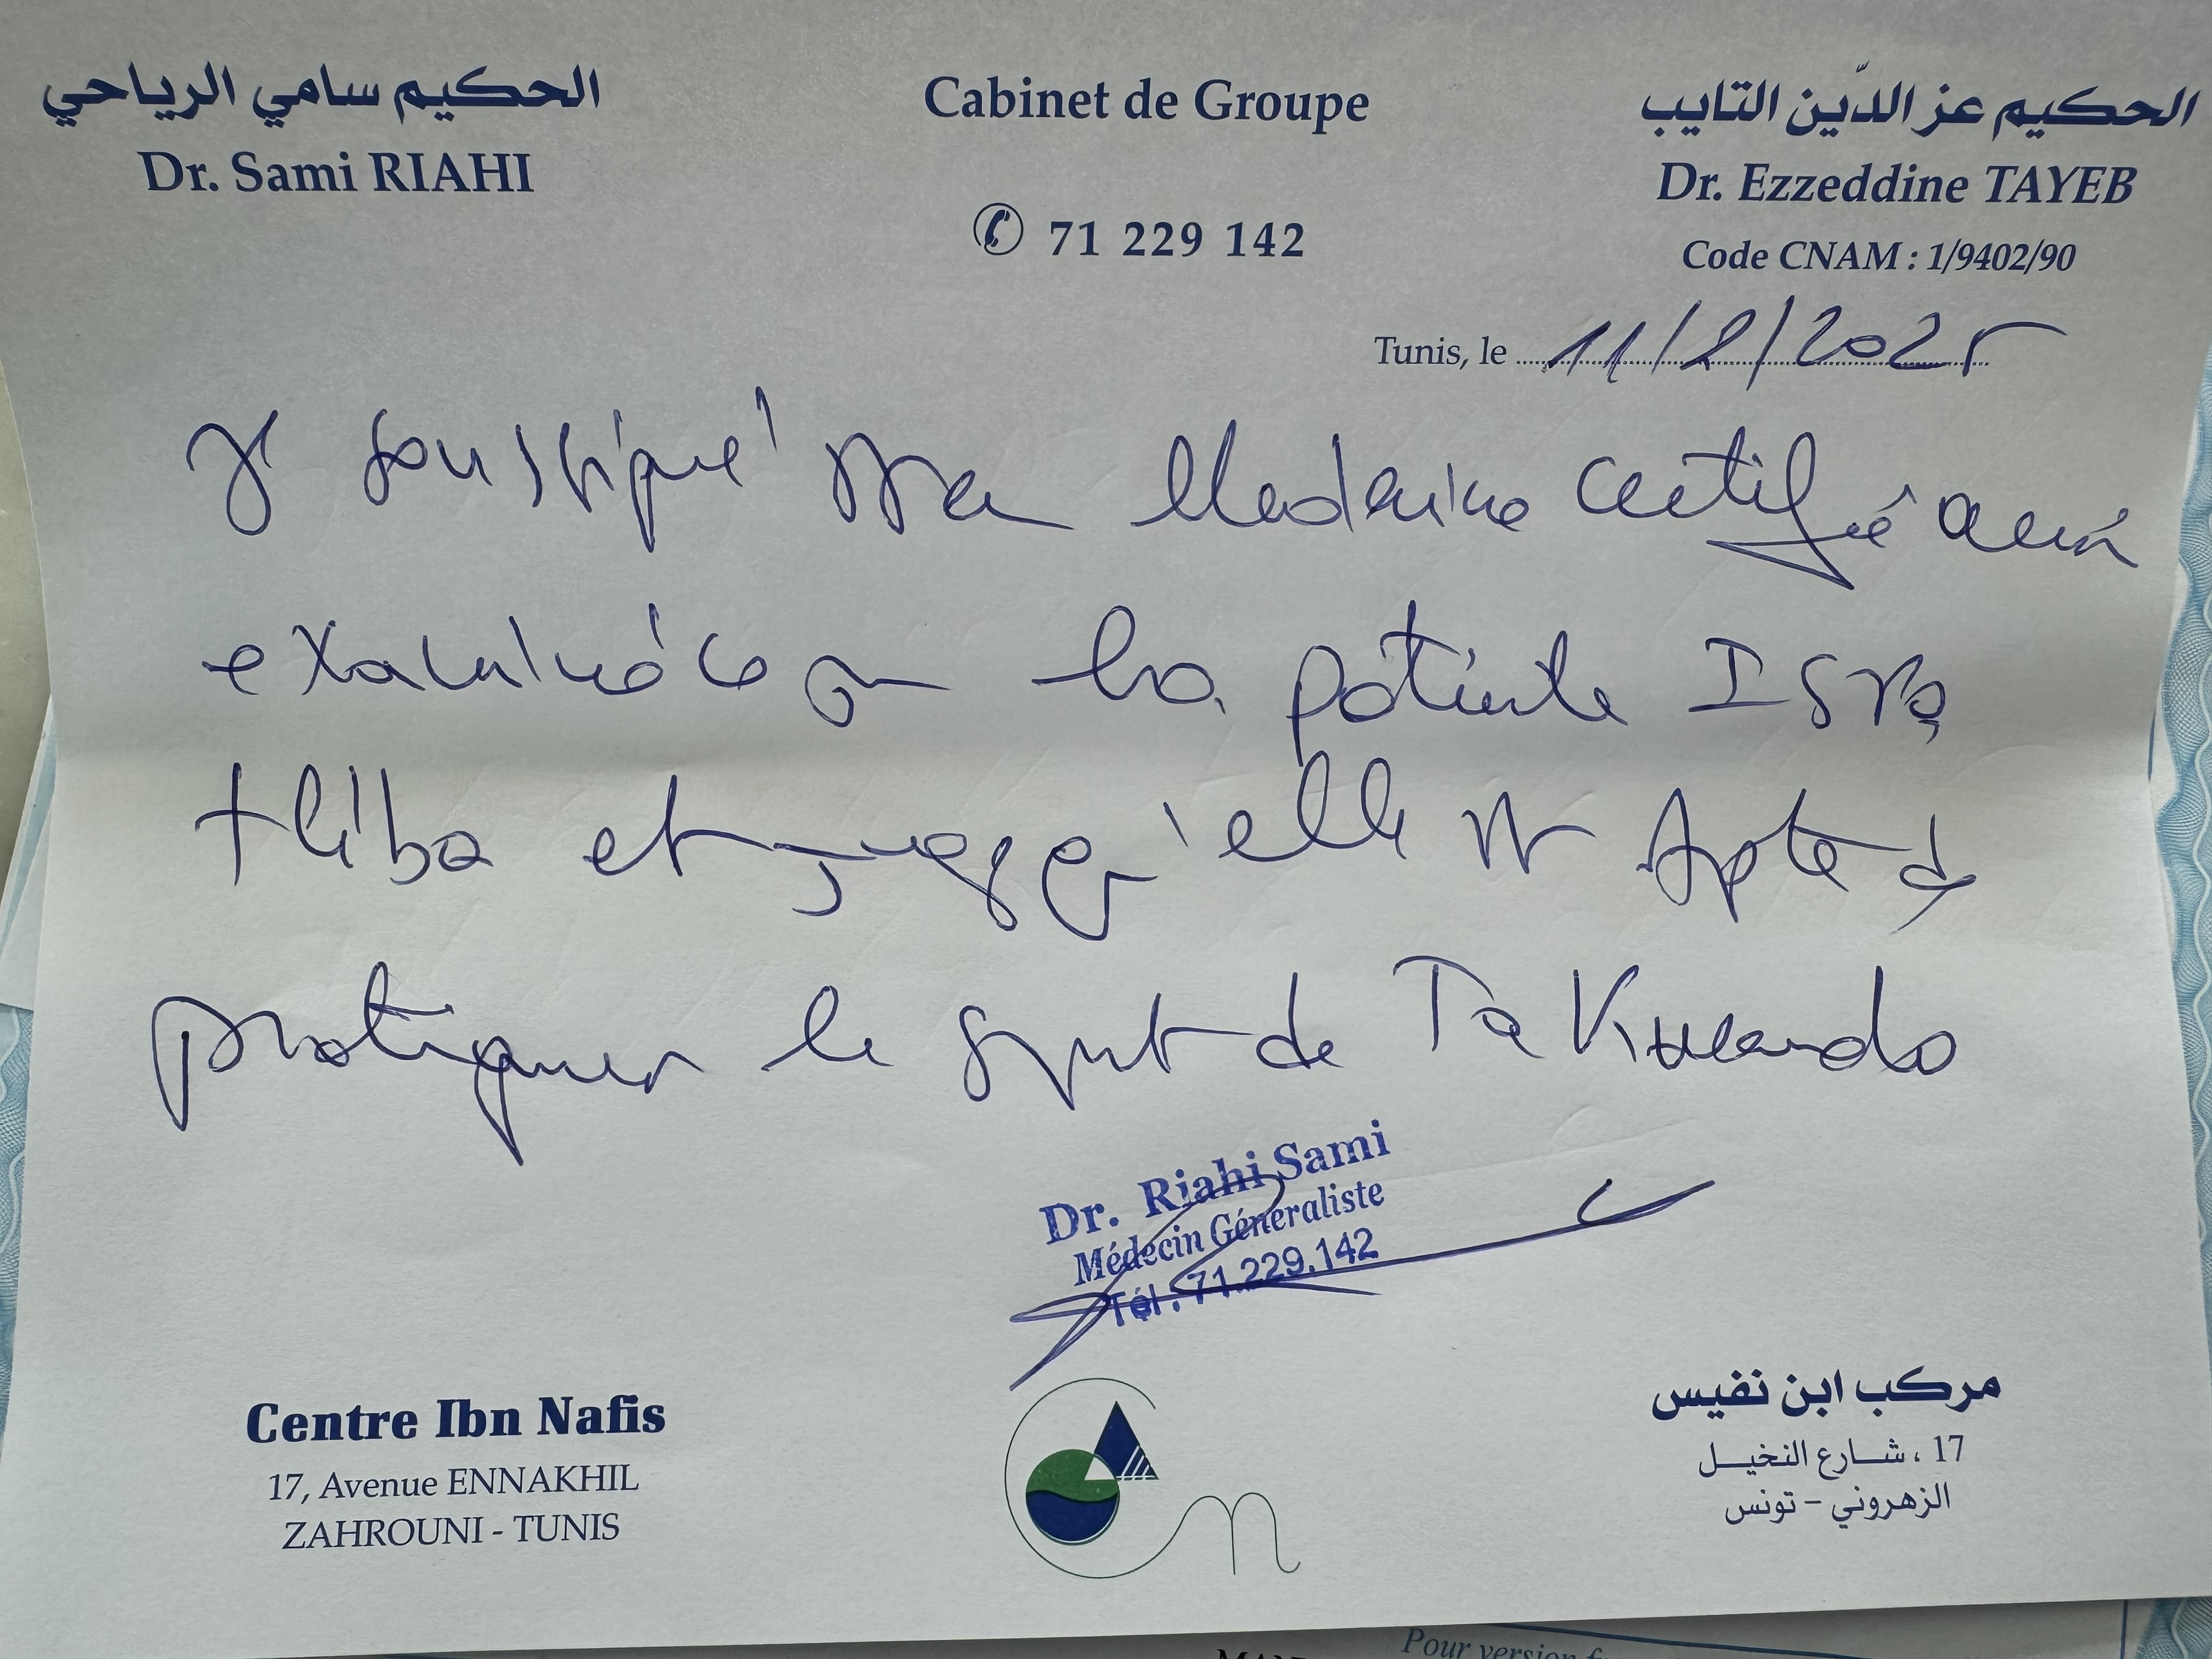 الحكيم سامي الرياحي
Dr. Sami RIAHI
Cabinet de Groupe
71 229 142
الحكيم عز الدّين التايب
Dr. Ezzeddine TAYEB
Code CNAM : 1/9402/90
Tunis, le 11/2/2025
Je soussigné Docteur en Médecine certifie avoir
examiné ce jour la patiente Isra
tliba et juge qu'elle est Apte à
pratiquer le sport de Takwando
Dr. Riahi Sami
Médecin Géneraliste
Tél : 71.229.142
Centre Ibn Nafis
17, Avenue ENNAKHIL
ZAHROUNI - TUNIS
مركب ابن نفيس
17 ، شارع النخيل
الزهروني - تونس
Pour version